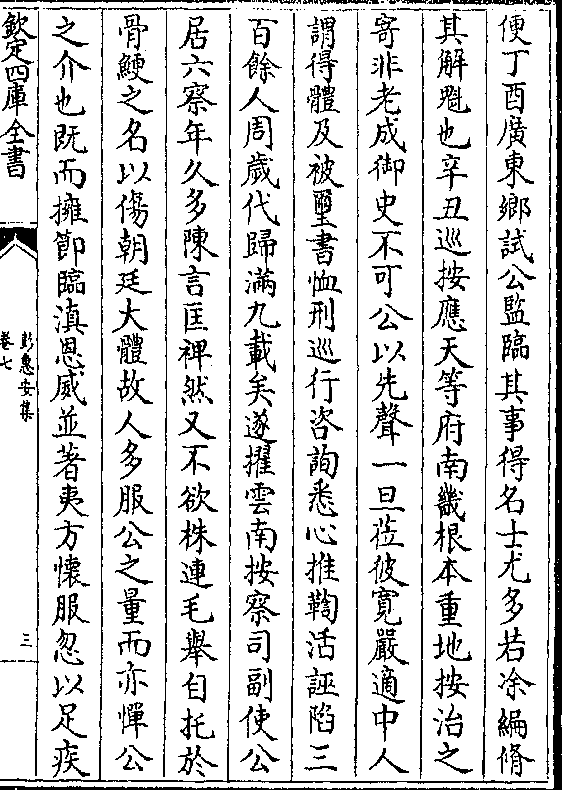 便丁酉廣東鄉試公監臨其事得名士尤多若凃編脩
其解魁也辛丑巡按應天等府南畿根本重地按治之
寄非老成御史不可公以先聲一旦蒞彼寛嚴適中人
謂得體及被璽書恤刑巡行咨詢悉心推鞫活誣陷三
百餘人周歲代歸滿九載矣遂擢雲南按察司副使公
居六察年久多陳言匡裨然又不欲株連毛舉自托於
骨鯁之名以傷朝廷大體故人多服公之量而亦憚公
之介也既而擁節臨滇恩威並著夷方懷服忽以足疾
欽定四庫全書
彭惠安集
卷七
三